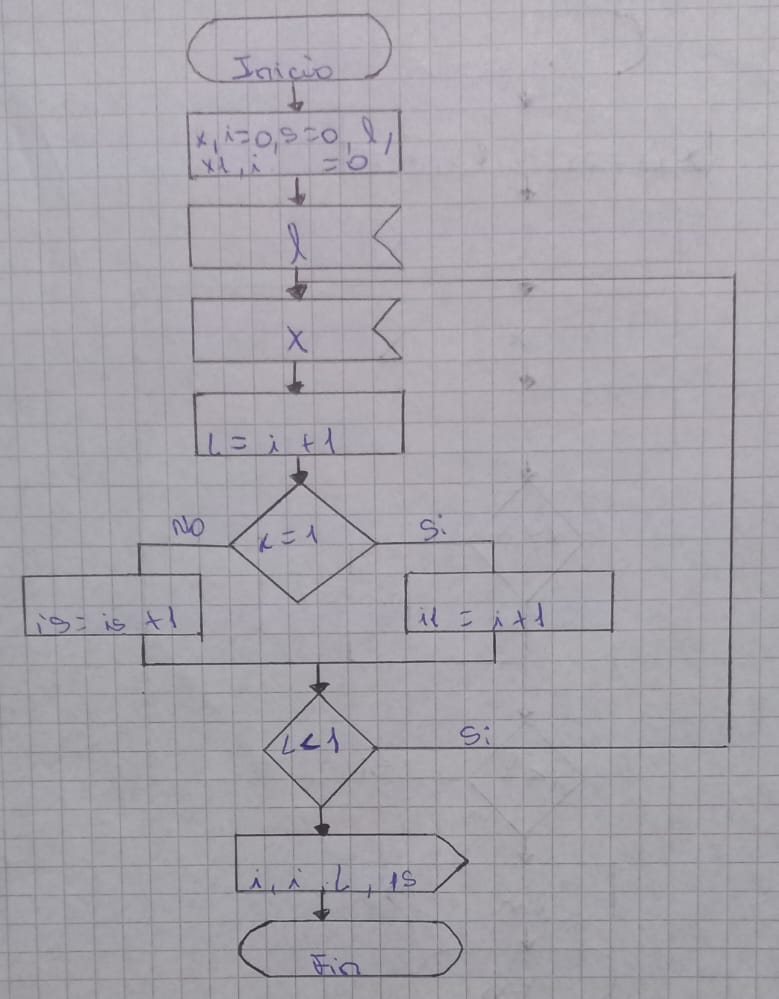 Inicio
x, i=0, s=0, l,
x1, i =0
l
x
L = i + 1
No
x = 1
Si
is = is + 1
i1 = i + 1
L < 1
Si
i, i, L, is
Fin